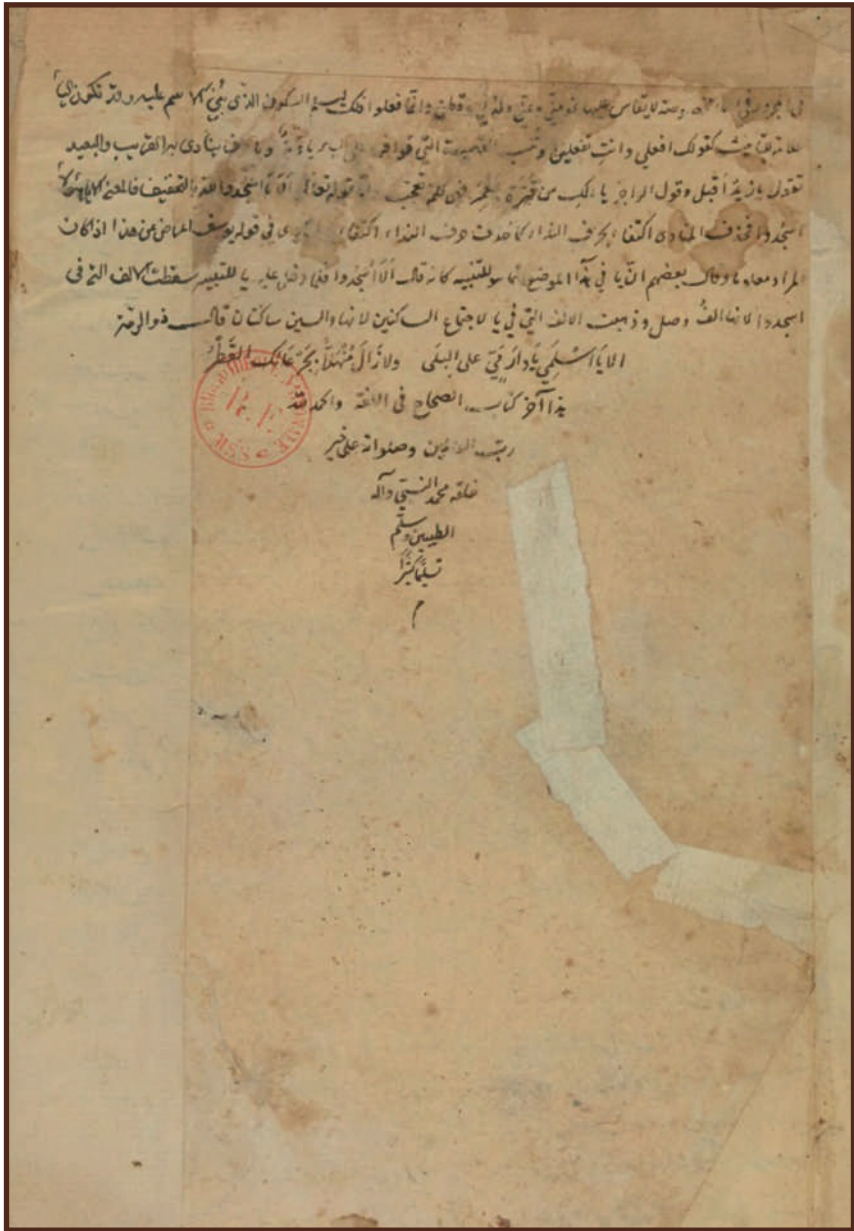 لا يقاس عليها نحو منّي وعنّي ولدنّي وقطني وانما فعلوا ذلك ليسلم السكون الذى بُني الاسم عليه وقد تكون اليا
علامة للتانيث كقولك افعلي وانتِ تفعلين وتنسب القصيدة التي قوافيها على اليا ياوية ويا حرف ينادى به القريب والبعيد
تقول يا زيدُ اَقبل وقول الراجز يا لكِ من قُبَّرَة بمَعْمَر فهي كلمة تعجب قوله تعالى اَلا يَا اسْجُدوا لله بالتخفيف فالمعنى الا يا هؤلا
اسجدوا فحذف المنادى اكتفا بحرف النداء كما حذف حرف النداء اكتفا فى قوله يوسف اعرض عن هذا اذ كان
المراد معلوما وقال بعضهم انّ يا في هذا الموضع انما هو للتنبيه كانه قال اَلا اسْجدوا فلما دخل عليه يا للتنبيه سقطت الالف التي فى
اسجدوا لانها الفُ وصل وذهبت الالف التي في يا لاجتماع الساكنين لانها والسين ساكنان قال ذو الرمة
الا يَا اسْلَمِي يَا دَارَ مَيَّ على البِلَى ولا زَالَ مُنْهَلّاً بجَرْعَائِك القَطْرُ
هذا آخر كتاب الصحاح فى اللغة والحمد لله
ربّ العالمين وصلواته على خير
خلقه محمد النبيّ وآله
الطيبين وسلّم
تسليمًا كثيرًا
م